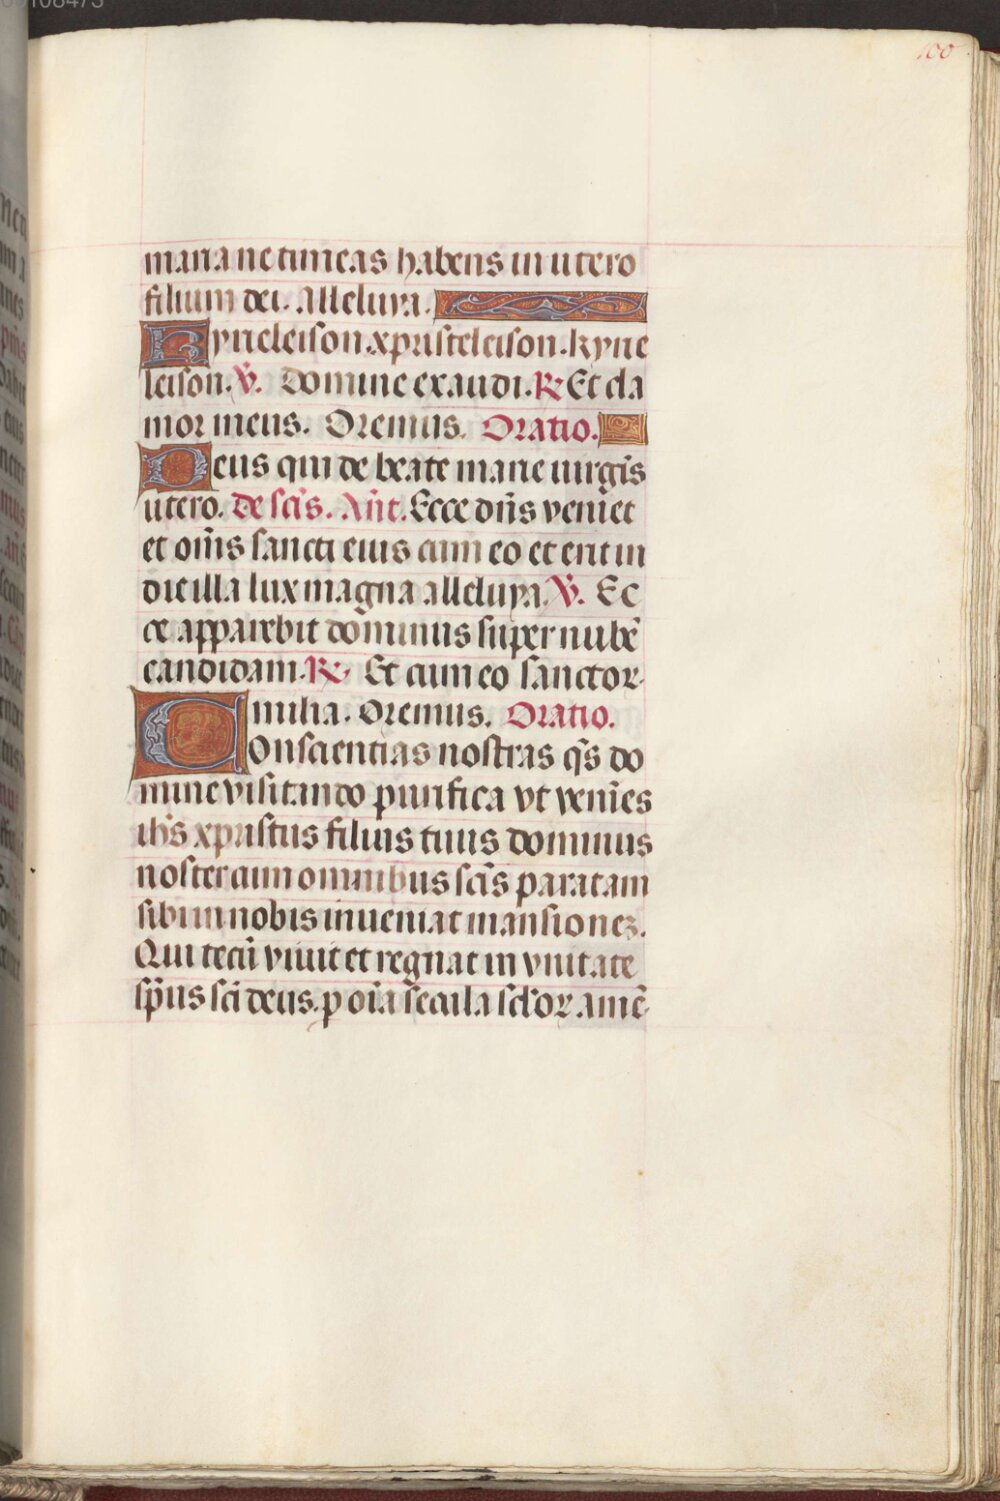 100
maria ne timeas habens in utero
filium dei. Alleluya.
Kyrieleison. xpristeleison. Kyrie
leison. V. Domine exaudi. R Et cla
mor meus. Oremus. Oratio.
Deus qui de beate marie uirgīs
utero. De scīs. Añt. Ecce dn̄s veniet
et om̄s sancti eius cum eo et erit in
die illa lux magna alleluya. V. Ec
ce apparebit dominus super nubē
candidam. R Et cum eo sanctor
milia. Oremus. Oratio.
Conscientias nostras qs̄ do
mine visitando purifica vt veniēs
ihs̄ xpristus filius tuus dominus
noster cum omnibus scīs paratam
sibi in nobis inueniat mansionez.
Qui tecū viuit et regnat in vnitate
sp̄us scī deus. p oīa secula sclor. amē